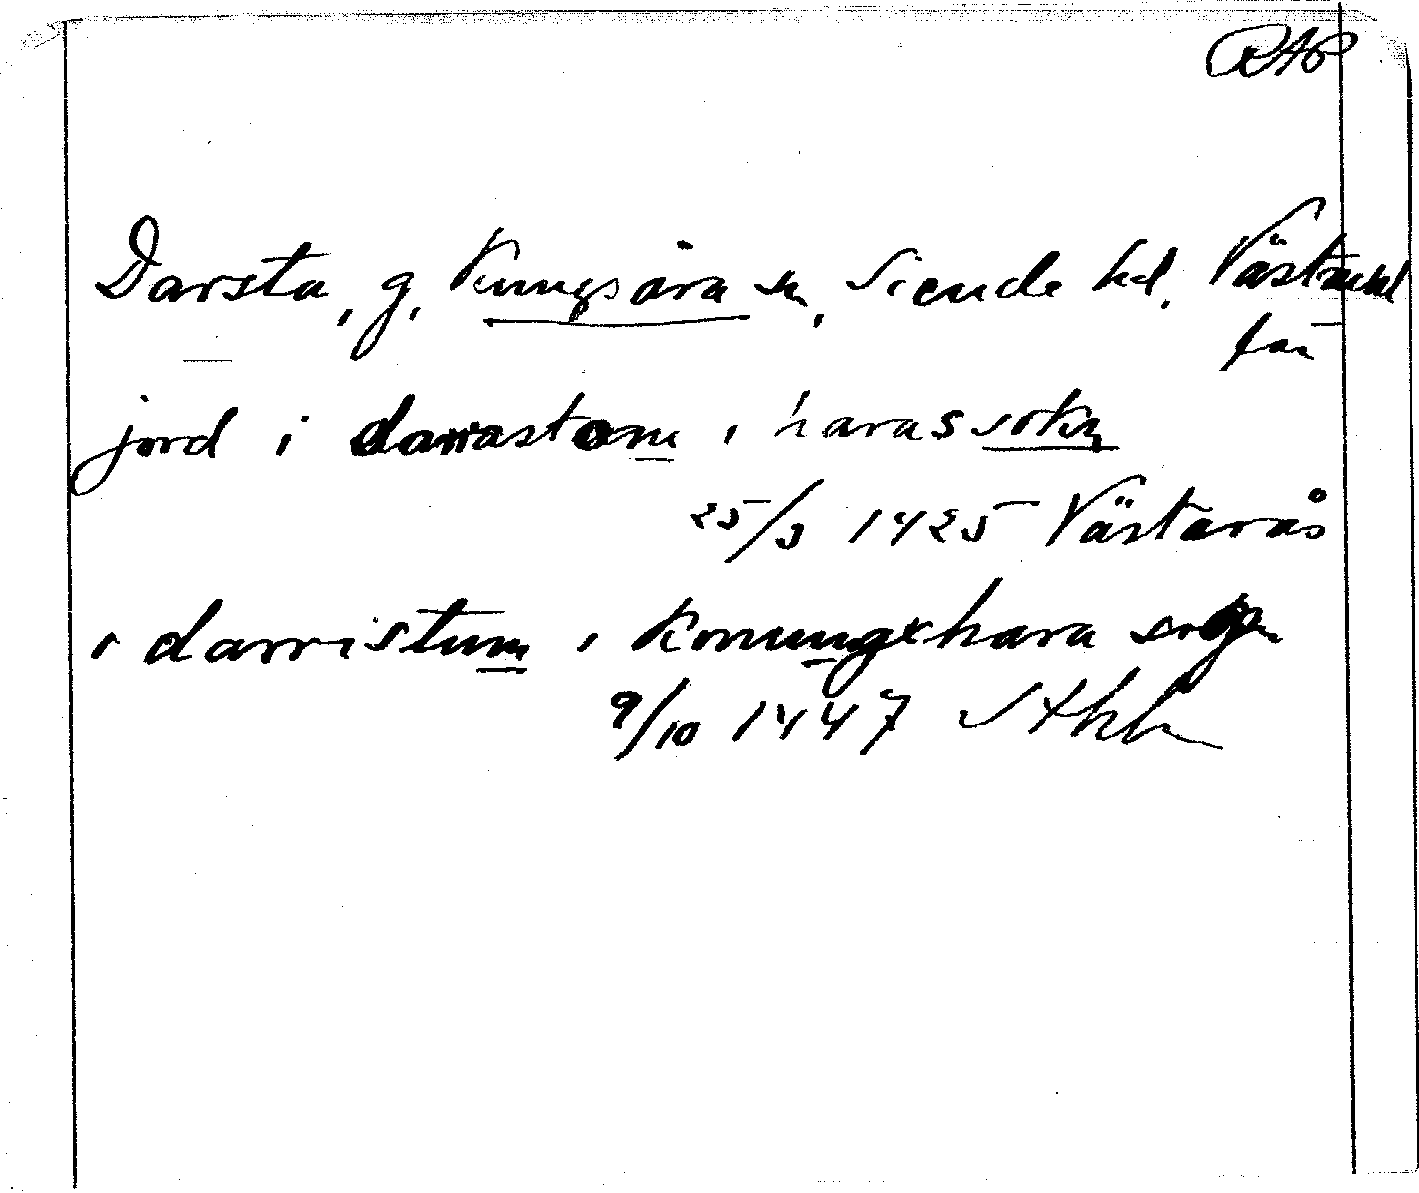 RAP
Darsta, g, Kungsåra sn, Siende hd. Västmanl
län
jord i darrastom i haras sokn
25/3 1425 Västarås
i darristum i Konungxhara sogn
9/10 1447 Sthlm